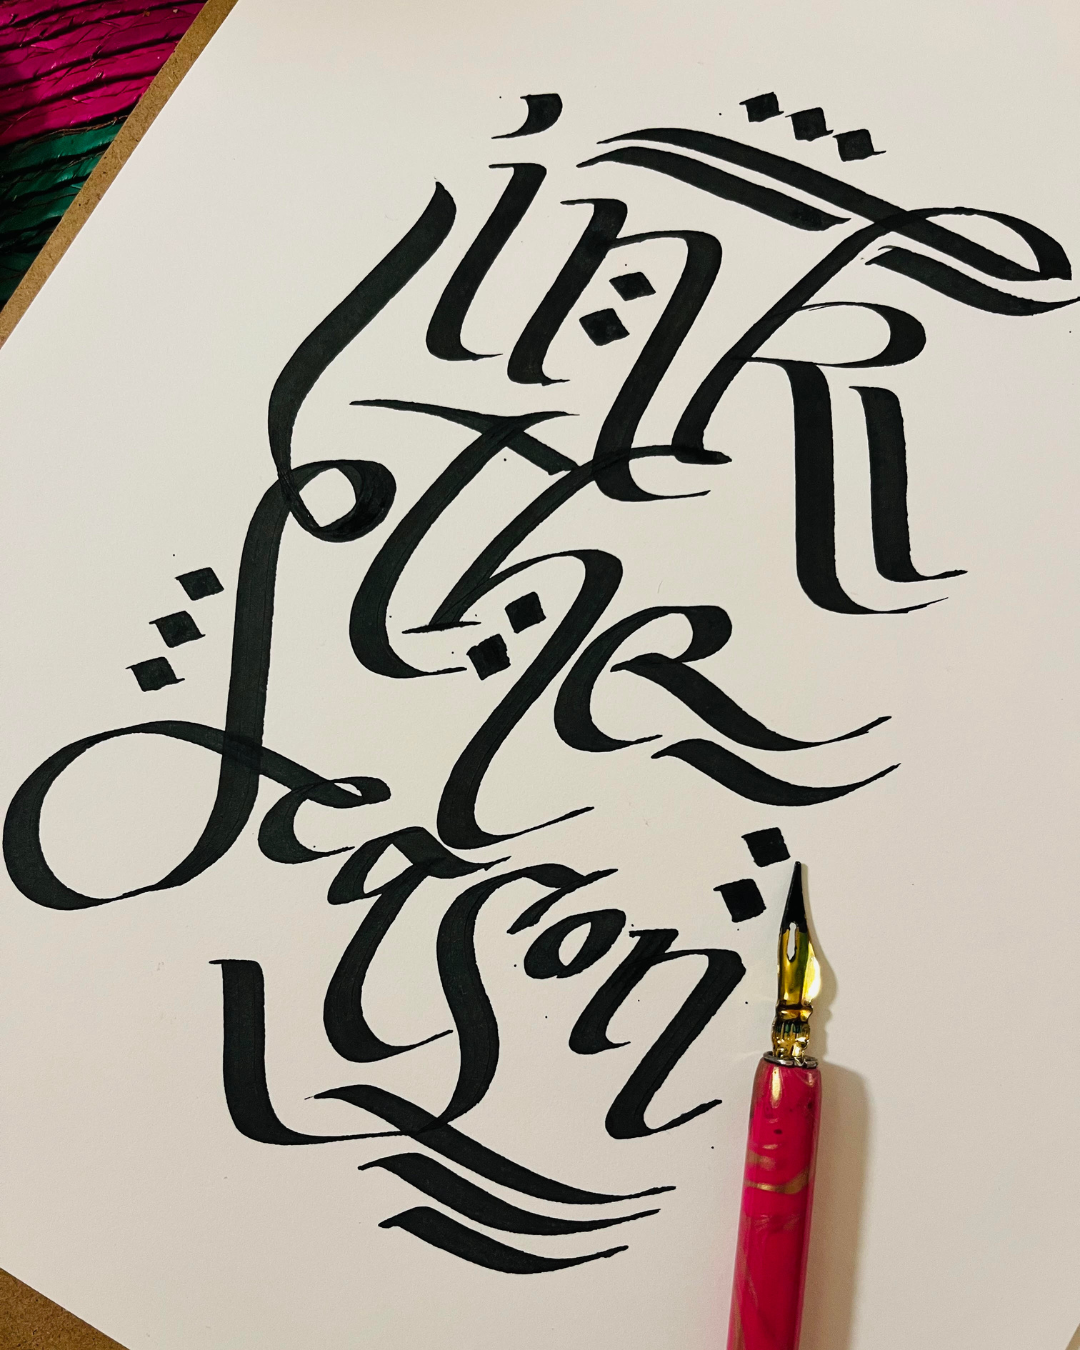 ink
the
Season